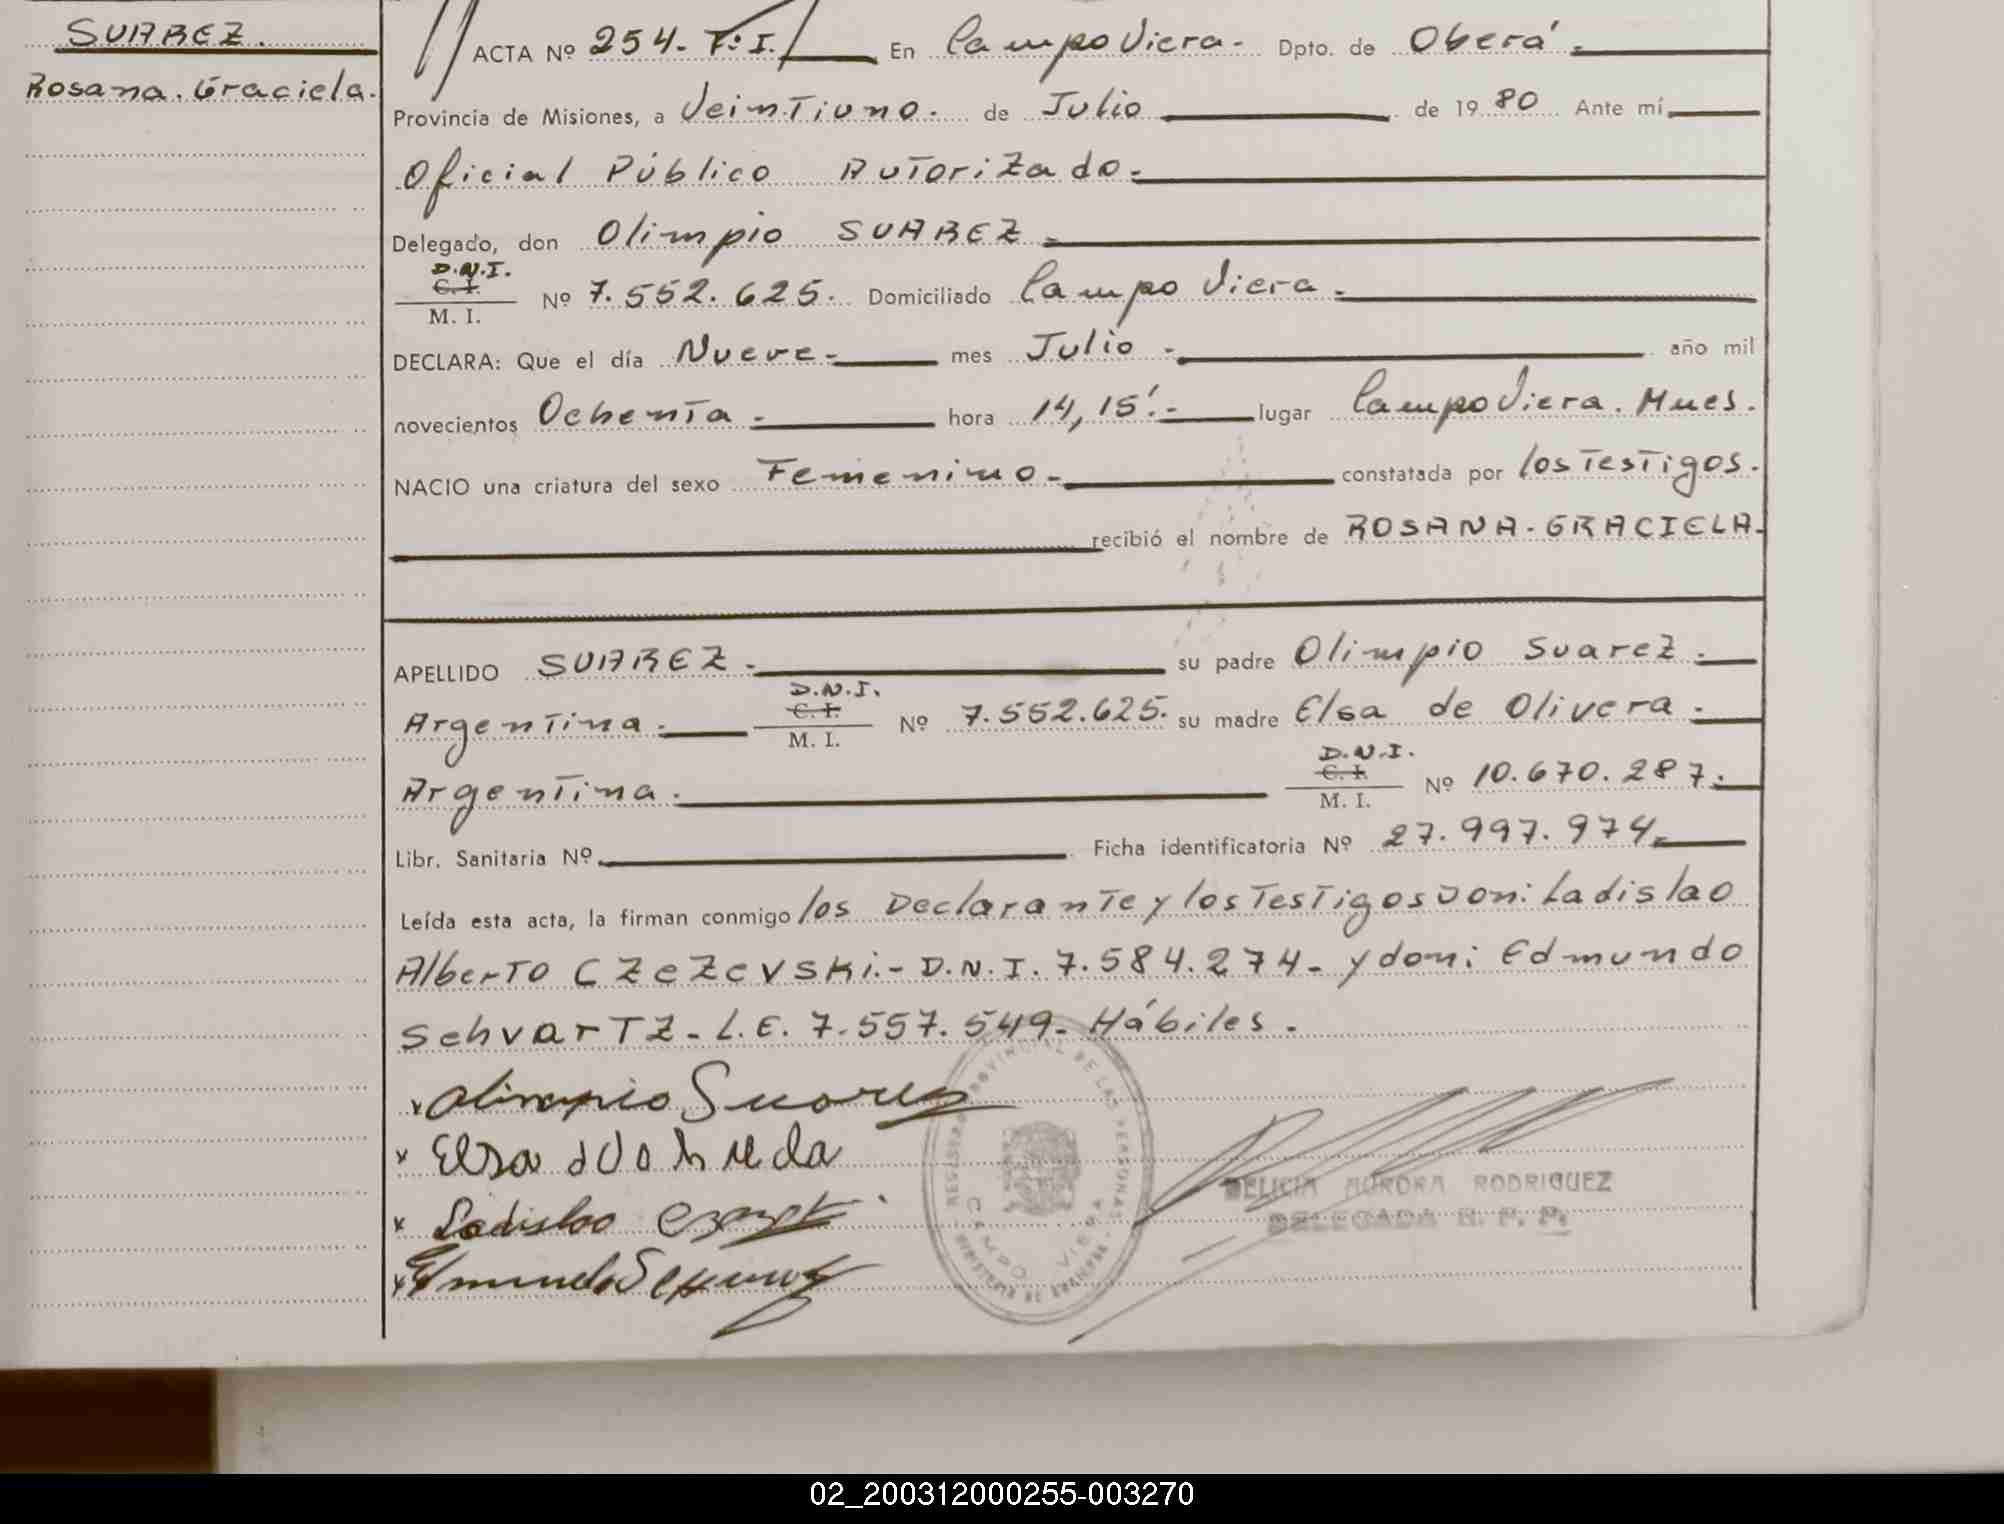 SUAREZ.
Rosana. Graciela.
ACTA Nº 254. Tº I. En Campo Viera. Dpto. de Oberá.
Provincia de Misiones, a Veintiuno. de Julio de 1980 Ante mí
Oficial Público Autorizado.
Delegado, don Olimpio SUAREZ
D.N.I.
C. I.
M. I. Nº 7.552.625. Domiciliado Campo Viera.
DECLARA: Que el día Nueve mes Julio año mil
novecientos Ochenta hora 14,15'. lugar Campo Viera. Mnes.
NACIO una criatura del sexo Femenino constatada por los Testigos.
recibió el nombre de ROSANA-GRACIELA.
APELLIDO SUAREZ. su padre Olimpio Suarez.
Argentina. D.N.I. C. I. M. I. Nº 7.552.625. su madre Elsa de Olivera.
Argentina. D.N.I. C. I. M. I. Nº 10.670.287.
Libr. Sanitaria Nº Ficha identificatoria Nº 27.997.974
Leída esta acta, la firman conmigo los Declarante y los Testigos Don: Ladislao
Alberto CZEZEVSKI.- D.N.I. 7.584.274- y don: Edmundo
SchvarTZ- L.E. 7.557.549- Hábiles.
x Olimpio Suarez
x Elsa
x Ladislao
x
REGISTRO PROVINCIAL DE LAS PERSONAS
CAMPO VIERA
DELICIA AURORA RODRIGUEZ
DELEGADA R. P. P.
02_200312000255-003270